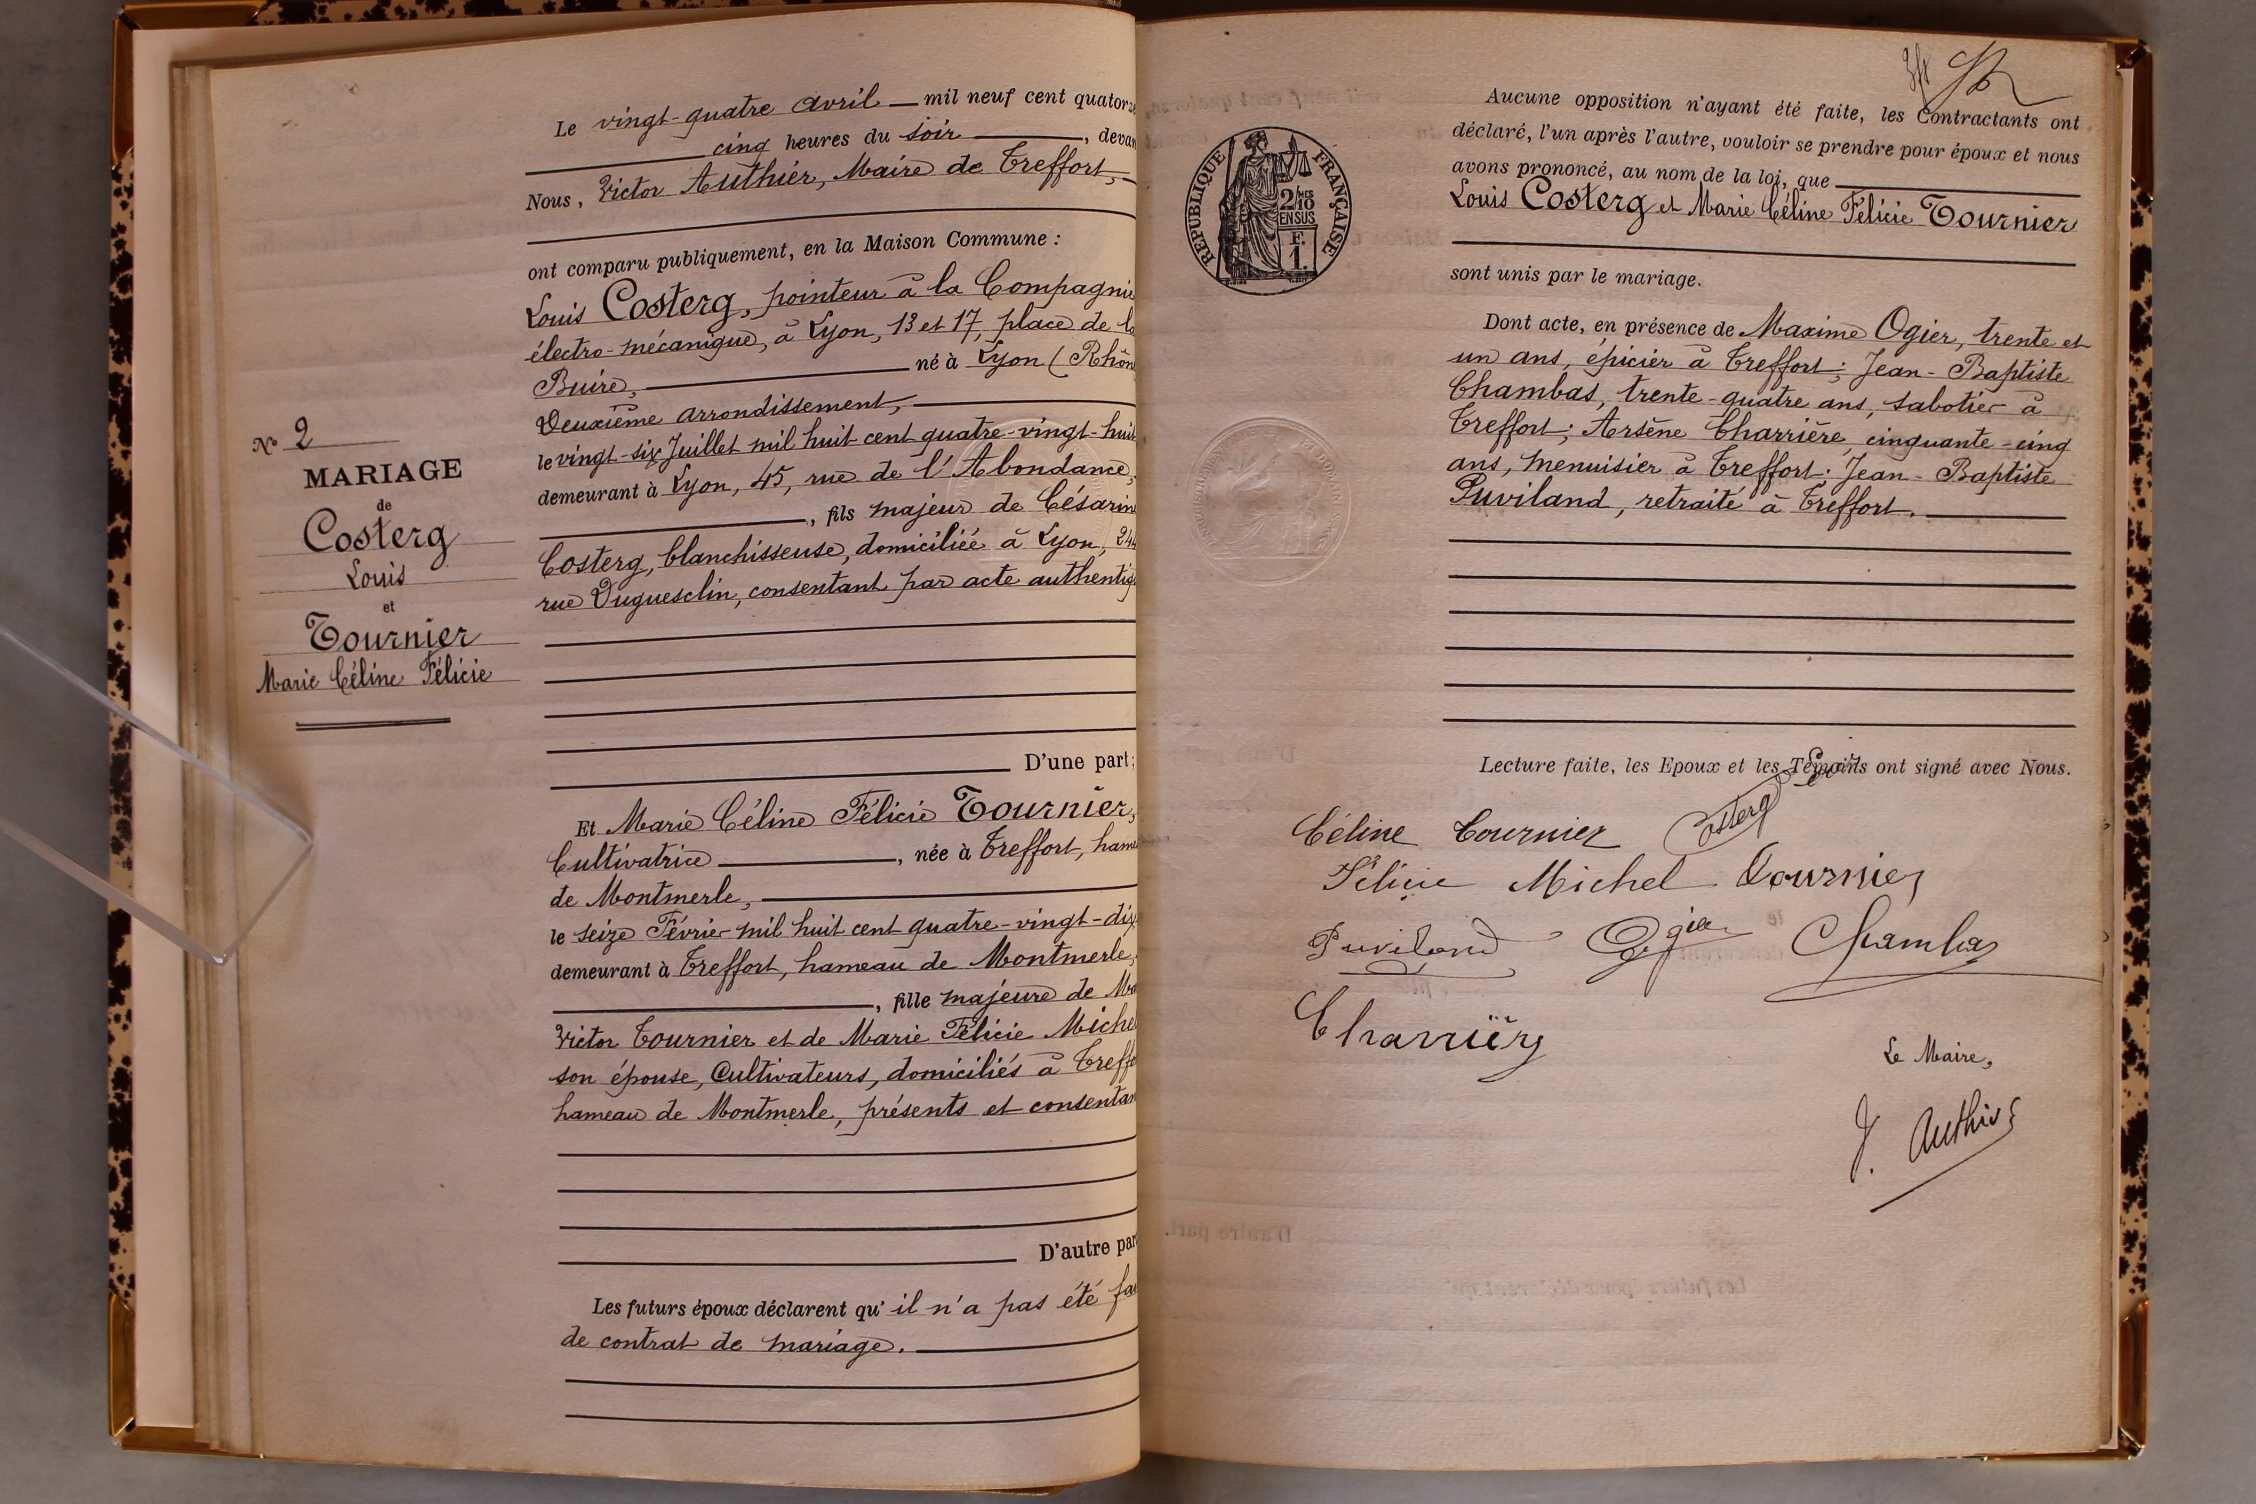 Le vingt-quatre avril mil neuf cent quatorze
cinq heures du soir, devan
Nous, Victor Authier, Maire de Treffort,
ont comparu publiquement, en la Maison Commune :
Louis Costerg, pointeur à la Compagnie
électro-mécanique, à Lyon, 13 et 17, place de la
Buire, né à Lyon (Rhône
Deuxième arrondissement,
le vingt-six Juillet mil huit cent quatre-vingt-huit
demeurant à Lyon, 45, rue de l'Abondance,
, fils majeur de Césarine
Costerg, blanchisseuse, domiciliée à Lyon, 244
rue Duguesclin, consentant par acte authentiq
D'une part;
Et Marie Céline Félicie Tournier,
Cultivatrice, née à Treffort, hame
de Montmerle,
le seize Février mil huit cent quatre-vingt-dix
demeurant à Treffort, hameau de Montmerle,
, fille majeure de Ma
Victor Tournier et de Marie Félicie Michel
son épouse, Cultivateurs, domiciliés à Treffo
hameau de Montmerle, présents et consentan
D'autre par
Les futurs époux déclarent qu'il n'a pas été fai
de contrat de mariage.
N° 2
MARIAGE
de
Costerg
Louis
et
Tournier
Marie Céline Félicie
RÉPUBLIQUE FRANÇAISE
2/10MES
EN SUS
F.
1.
Aucune opposition n'ayant été faite, les Contractants ont
déclaré, l'un après l'autre, vouloir se prendre pour époux et nous
avons prononcé, au nom de la loi, que
Louis Costerg et Marie Céline Félicie Tournier
sont unis par le mariage.
Dont acte, en présence de Maxime Ogier, trente et
un ans, épicier à Treffort; Jean-Baptiste
Chambas, trente-quatre ans, sabotier à
Treffort; Arsène Charrière, cinquante-cinq
ans, menuisier à Treffort; Jean-Baptiste
Puviland, retraité à Treffort.
Lecture faite, les Epoux et les Témoins ont signé avec Nous.
Céline Tournier Costerg Louis
Félicie Michel Tournier
Puviland Ogier Chambas
Charrière
Le Maire,
V. Authier